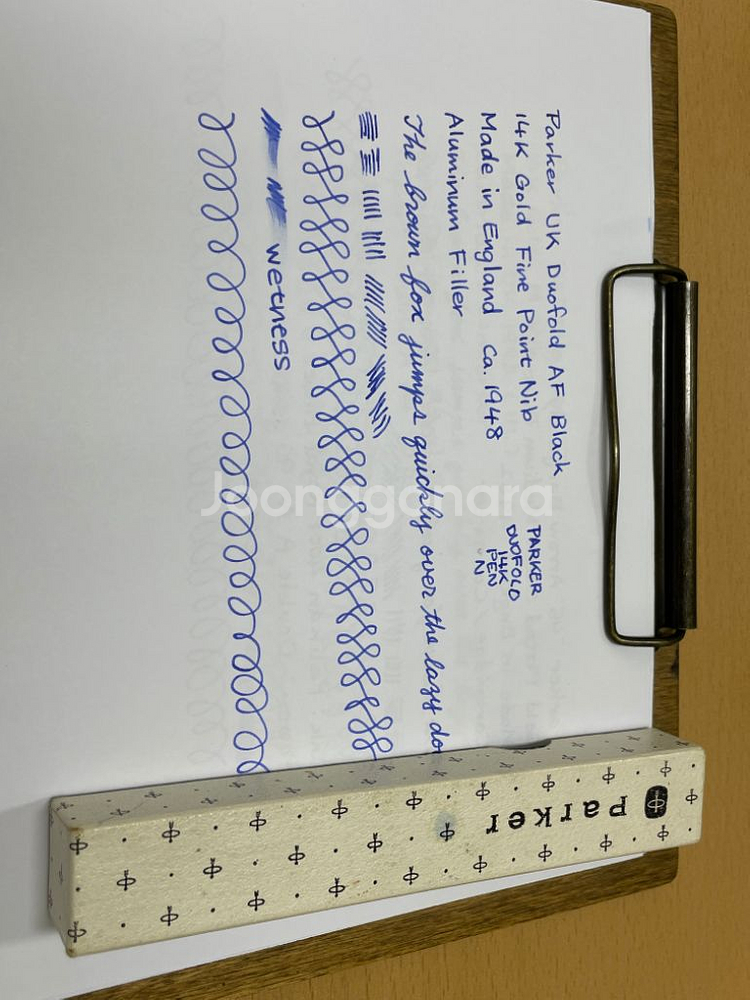 Parker UK Duofold AF Black
14K Gold Fine Point Nib
Made in England Ca. 1948
Aluminum Filler
PARKER
DUOFOLD
14K
PEN
N
The brown fox jumps quickly over the lazy do
wetness
Joonggonara
Parker